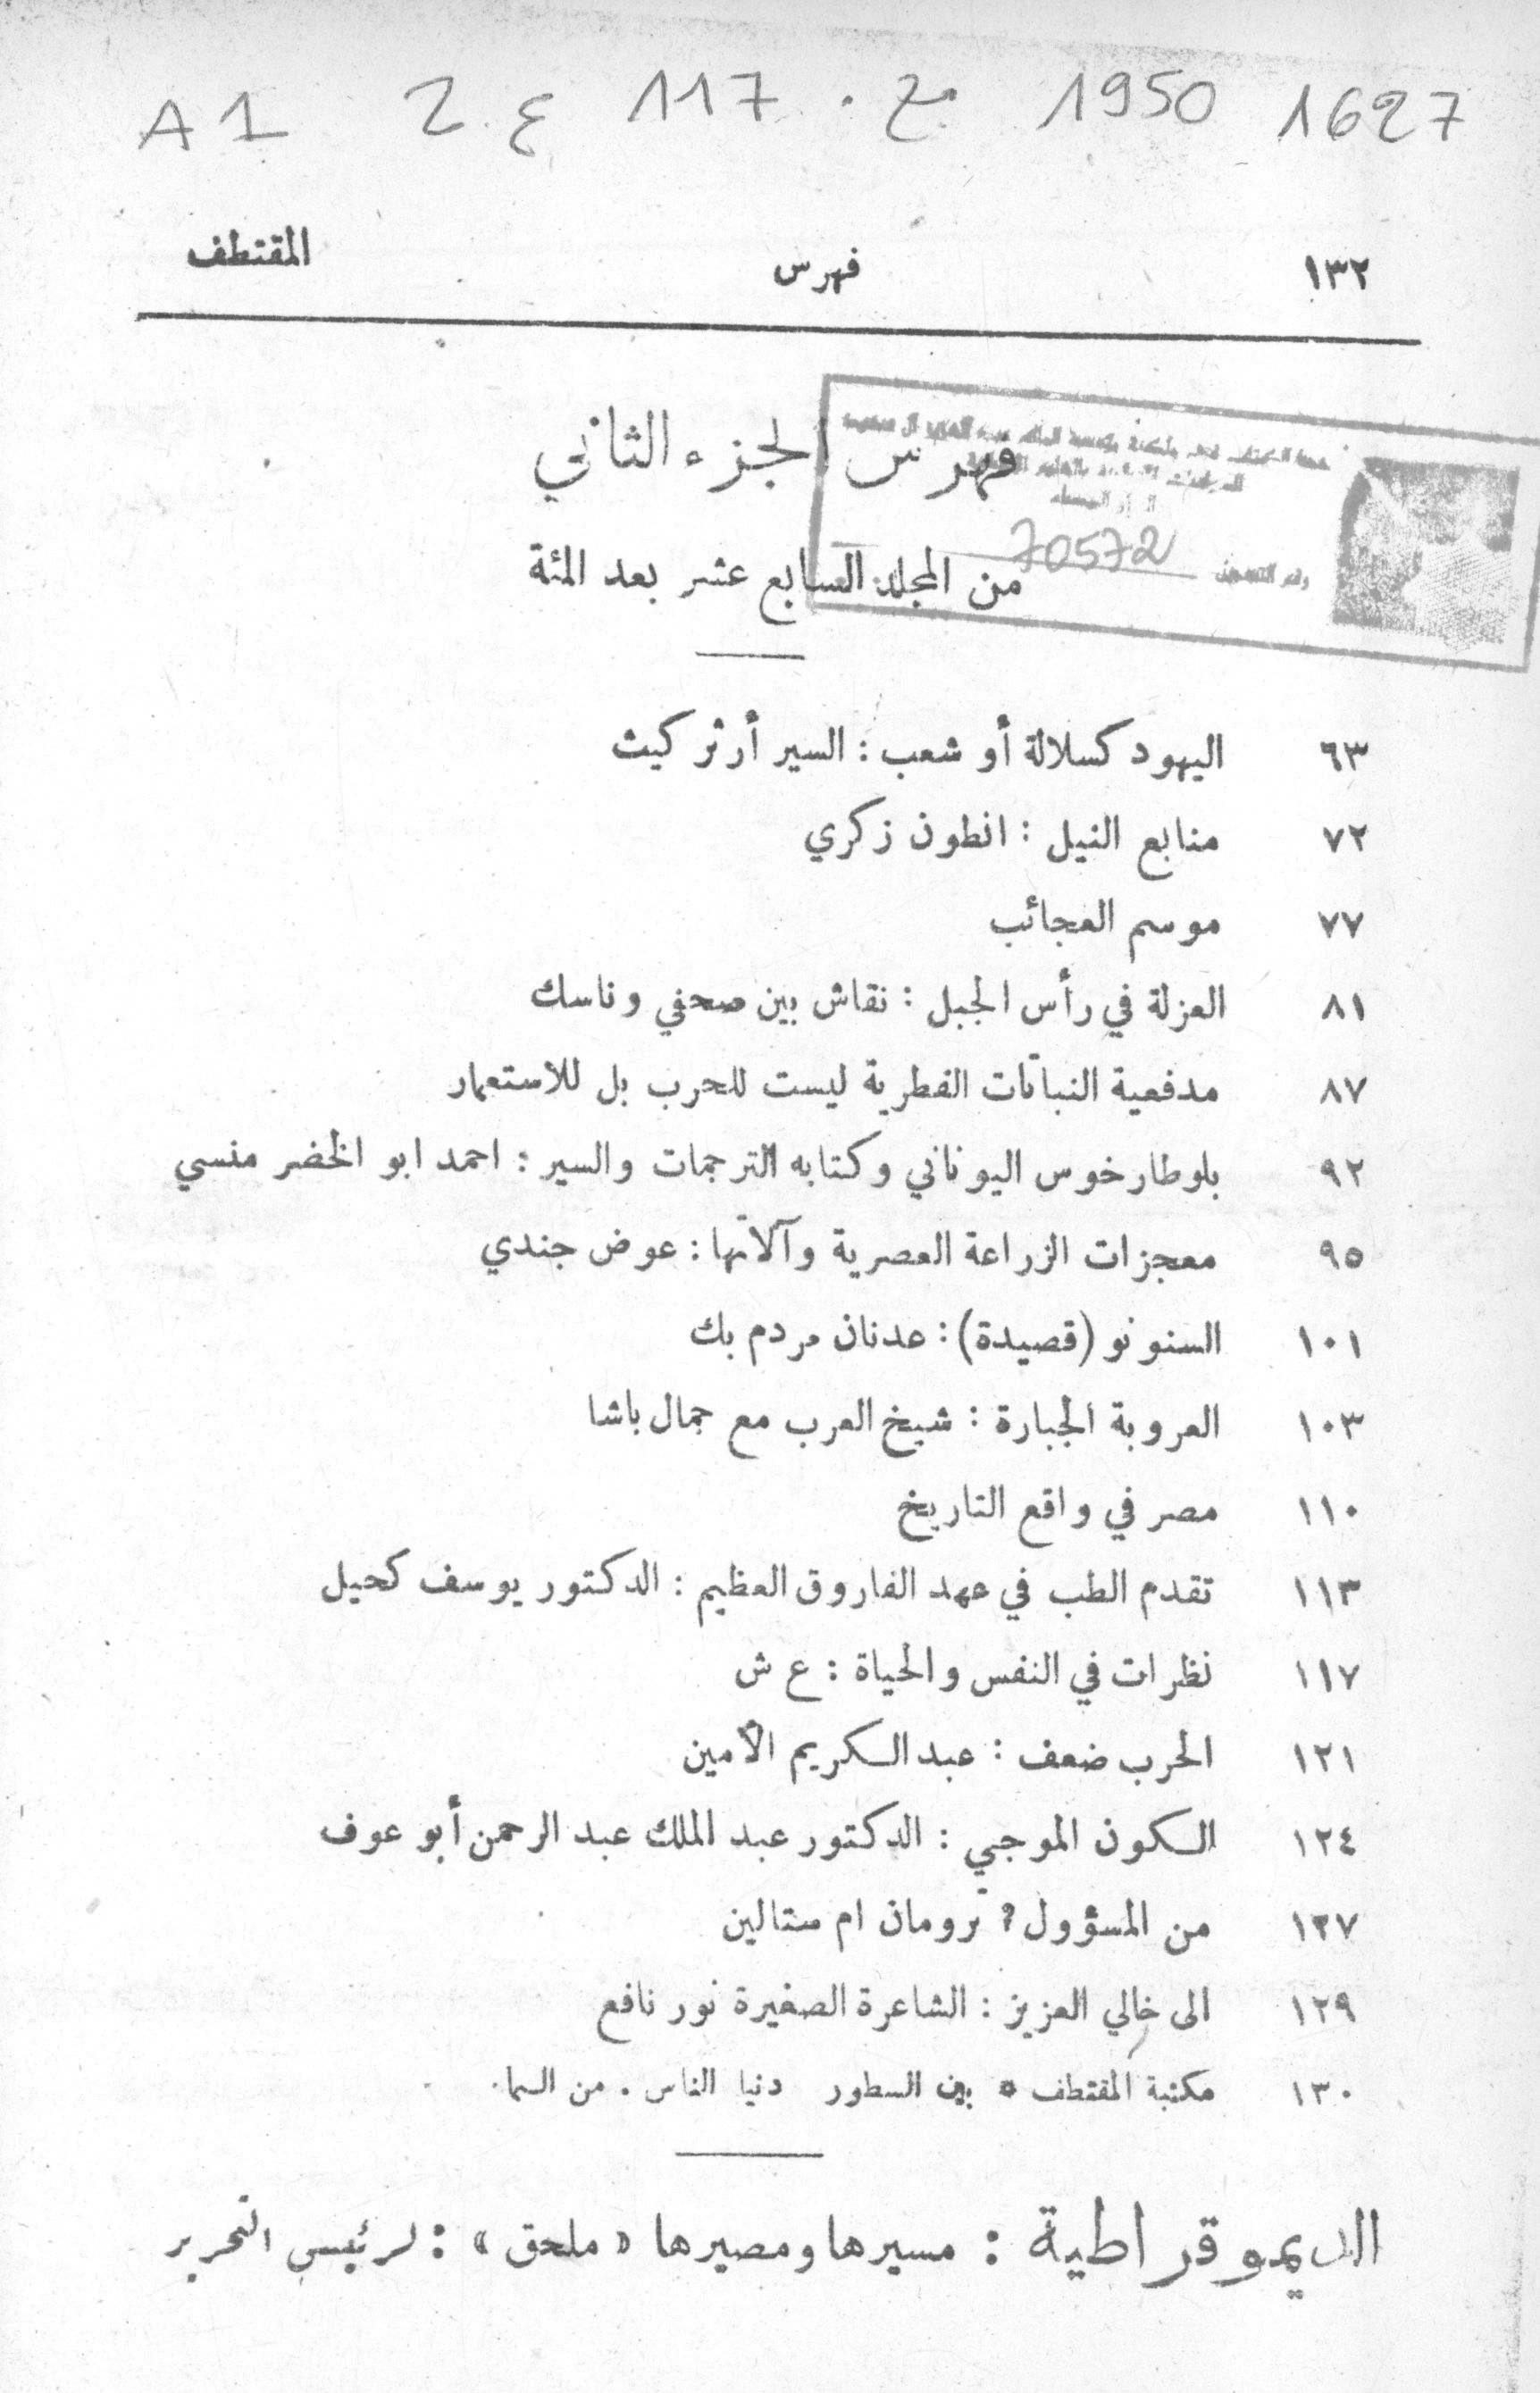 1627 1950 مج. 117 ع. 2 A1
١٣٢ فهرس المقتطف
فهرس الجزء الثاني
70572
رقم التسجيل
من المجلد السابع عشر بعد المئة
٦٣ اليهود كسلالة أو شعب : السير أرثر كيث
٧٢ منابع النيل : انطون زكري
٧٧ موسم العجائب
٨١ العزلة في رأس الجبل : نقاش بين صحفي وناسك
٨٧ مدفعية النباتات الفطرية ليست للحرب بل للاستعمار
٩٢ بلوطارخوس اليوناني وكتابه الترجمات والسير : احمد ابو الخضر منسي
٩٥ معجزات الزراعة العصرية وآلاتها : عوض جندي
١٠١ السنونو (قصيدة) : عدنان مردم بك
١٠٣ العروبة الجبارة : شيخ العرب مع جمال باشا
١١٠ مصر في واقع التاريخ
١١٣ تقدم الطب في عهد الفاروق العظيم : الدكتور يوسف كحيل
١١٧ نظرات في النفس والحياة : ع ش
١٢١ الحرب ضعف : عبد الكريم الأمين
١٢٤ الكون الموجي : الدكتور عبد الملك عبد الرحمن أبو عوف
١٢٧ من المسؤول ؟ ترومان ام ستالين
١٢٩ الى خالي العزيز : الشاعرة الصغيرة نور نافع
١٣٠ مكتبة المقتطف * بين السطور دنيا الناس . من السماء
الديموقراطية : مسيرها ومصيرها « ملحق » : لرئيس التحرير